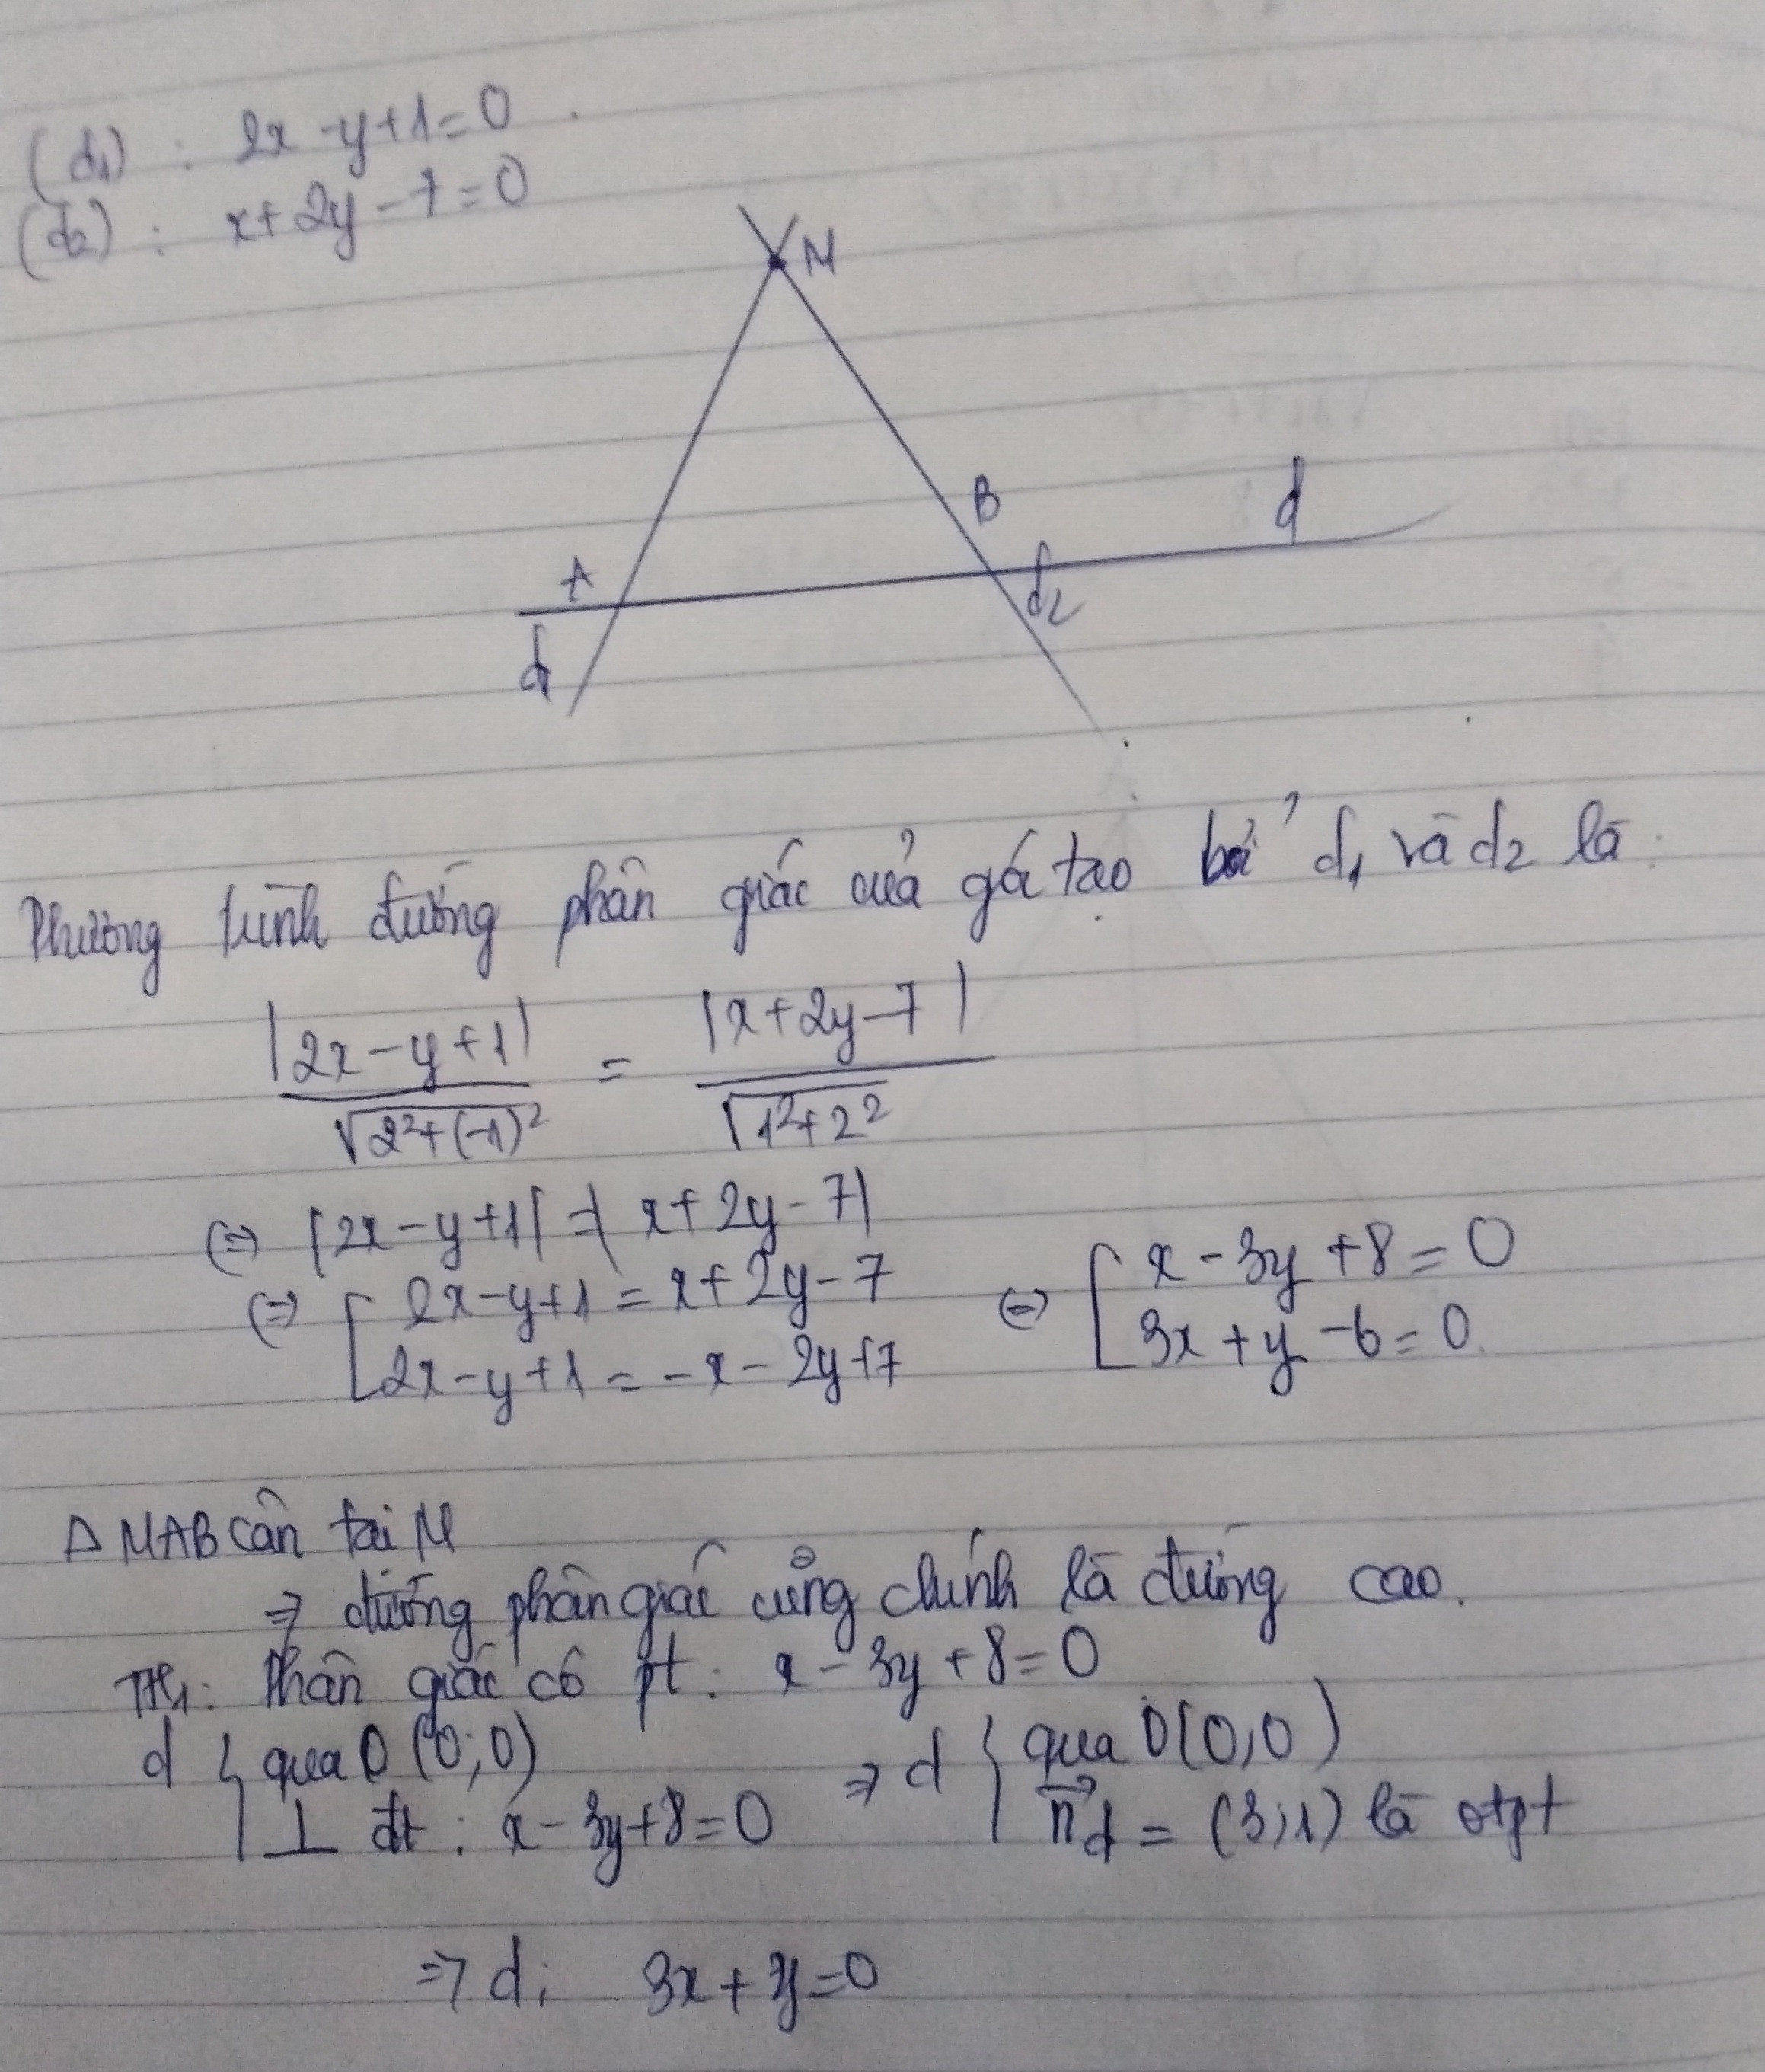 (d1) : 2x - y + 1 = 0
(d2) : x + 2y - 7 = 0
M
B
d
A
d2
d1
Phương trình đường phân giác của góc tạo bởi d1 và d2 là:
|2x - y + 1| / √(2² + (-1)²) = |x + 2y - 7| / √(1² + 2²)
(=) |2x - y + 1| = |x + 2y - 7|
(=) [ 2x - y + 1 = x + 2y - 7 (=) [ x - 3y + 8 = 0
2x - y + 1 = -x - 2y + 7 3x + y - 6 = 0
Δ MAB cân tại M
=> đường phân giác cũng chính là đường cao.
TH1: Phân giác có pt: x - 3y + 8 = 0
d { qua O (0; 0) => d { qua O (0; 0)
⊥ đt : x - 3y + 8 = 0 n⃗d = (3; 1) là vtpt
=> d: 3x + y = 0